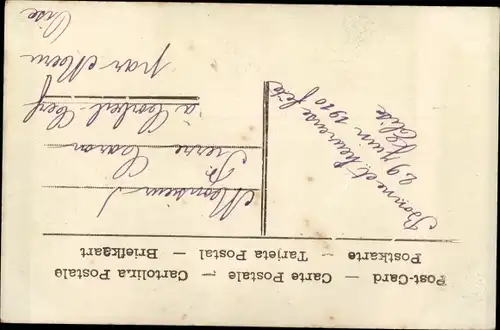 Post-Card — Carte Postale — Cartolina Postale
Postkarte — Tarjeta Postal — Briefkaart
Bonne et heureuse fête
29 Juin 1910
Elise
Monsieur
Pierre Caron
à Corbeil-Cerf
par Méru
Oise